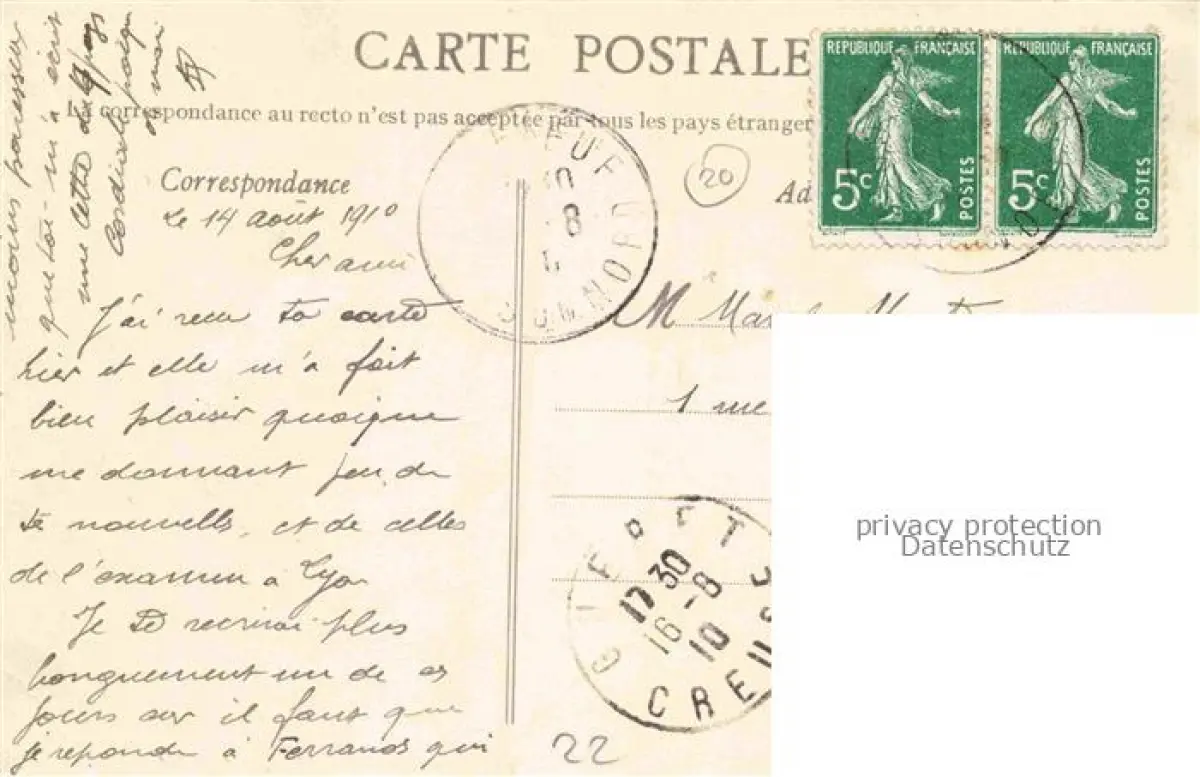 CARTE POSTALE
La correspondance au recto n'est pas acceptée par tous les pays étranger
Correspondance
Ad
Le 14 août 1910
Cher ami
J'ai recu ta carte
hier et elle m'a fait
bien plaisir quoique
me donnant peu de
te nouvells, et de celles
de l'examen a Lyon
Je te recrirai plus
longuement un de ces
jours car il faut que
je reponde à Ferranos qui
moins paresseux
que toi - m'a écrit
une lettre de 4 pages
Cordiale poignée
à moi
REPUBLIQUE FRANÇAISE
5c
POSTES
REPUBLIQUE FRANÇAISE
5c
POSTES
20
M
1 rue
17 30
16 -8
10
CREU
22
privacy protection
Datenschutz